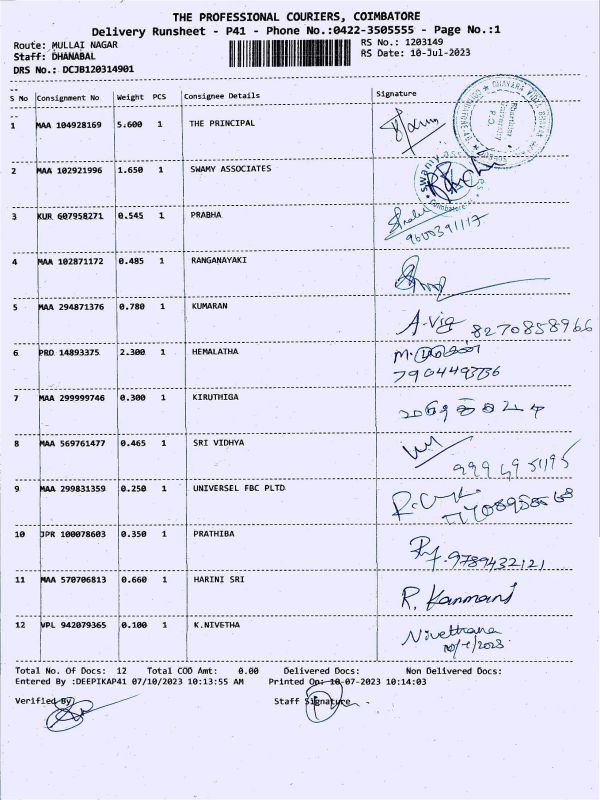 THE PROFESSIONAL COURIERS, COIMBATORE
Delivery Runsheet - P41 - Phone No.:0422-3505555 - Page No.:1
Route: MULLAI NAGAR RS No.: 1203149
Staff: DHANABAL RS Date: 10-Jul-2023
DRS No.: DCJB120314901
S No Consignment No Weight PCS Consignee Details Signature
1 MAA 104928169 5.600 1 THE PRINCIPAL
2 MAA 102921996 1.650 1 SWAMY ASSOCIATES
3 KUR 607958271 0.545 1 PRABHA
9600391117
4 MAA 102871172 0.485 1 RANGANAYAKI
5 MAA 294871376 0.780 1 KUMARAN
8270858966
6 PRO 14893375 2.300 1 HEMALATHA
7904493736
7 MAA 299999746 0.300 1 KIRUTHIGA
8 MAA 569761477 0.465 1 SRI VIDHYA
9 MAA 299831359 0.250 1 UNIVERSEL FBC PLTD
10 JPR 100078603 0.350 1 PRATHIBA
9789432121
11 MAA 570706813 0.660 1 HARINI SRI
R. Kanmani
12 VPL 942079365 0.100 1 K.NIVETHA
Total No. Of Docs: 12 Total COD Amt: 0.00 Delivered Docs: Non Delivered Docs:
Entered By :DEEPIKAP41 07/10/2023 10:13:55 AM Printed On: 10-07-2023 10:14:03
Verified By Staff Signature